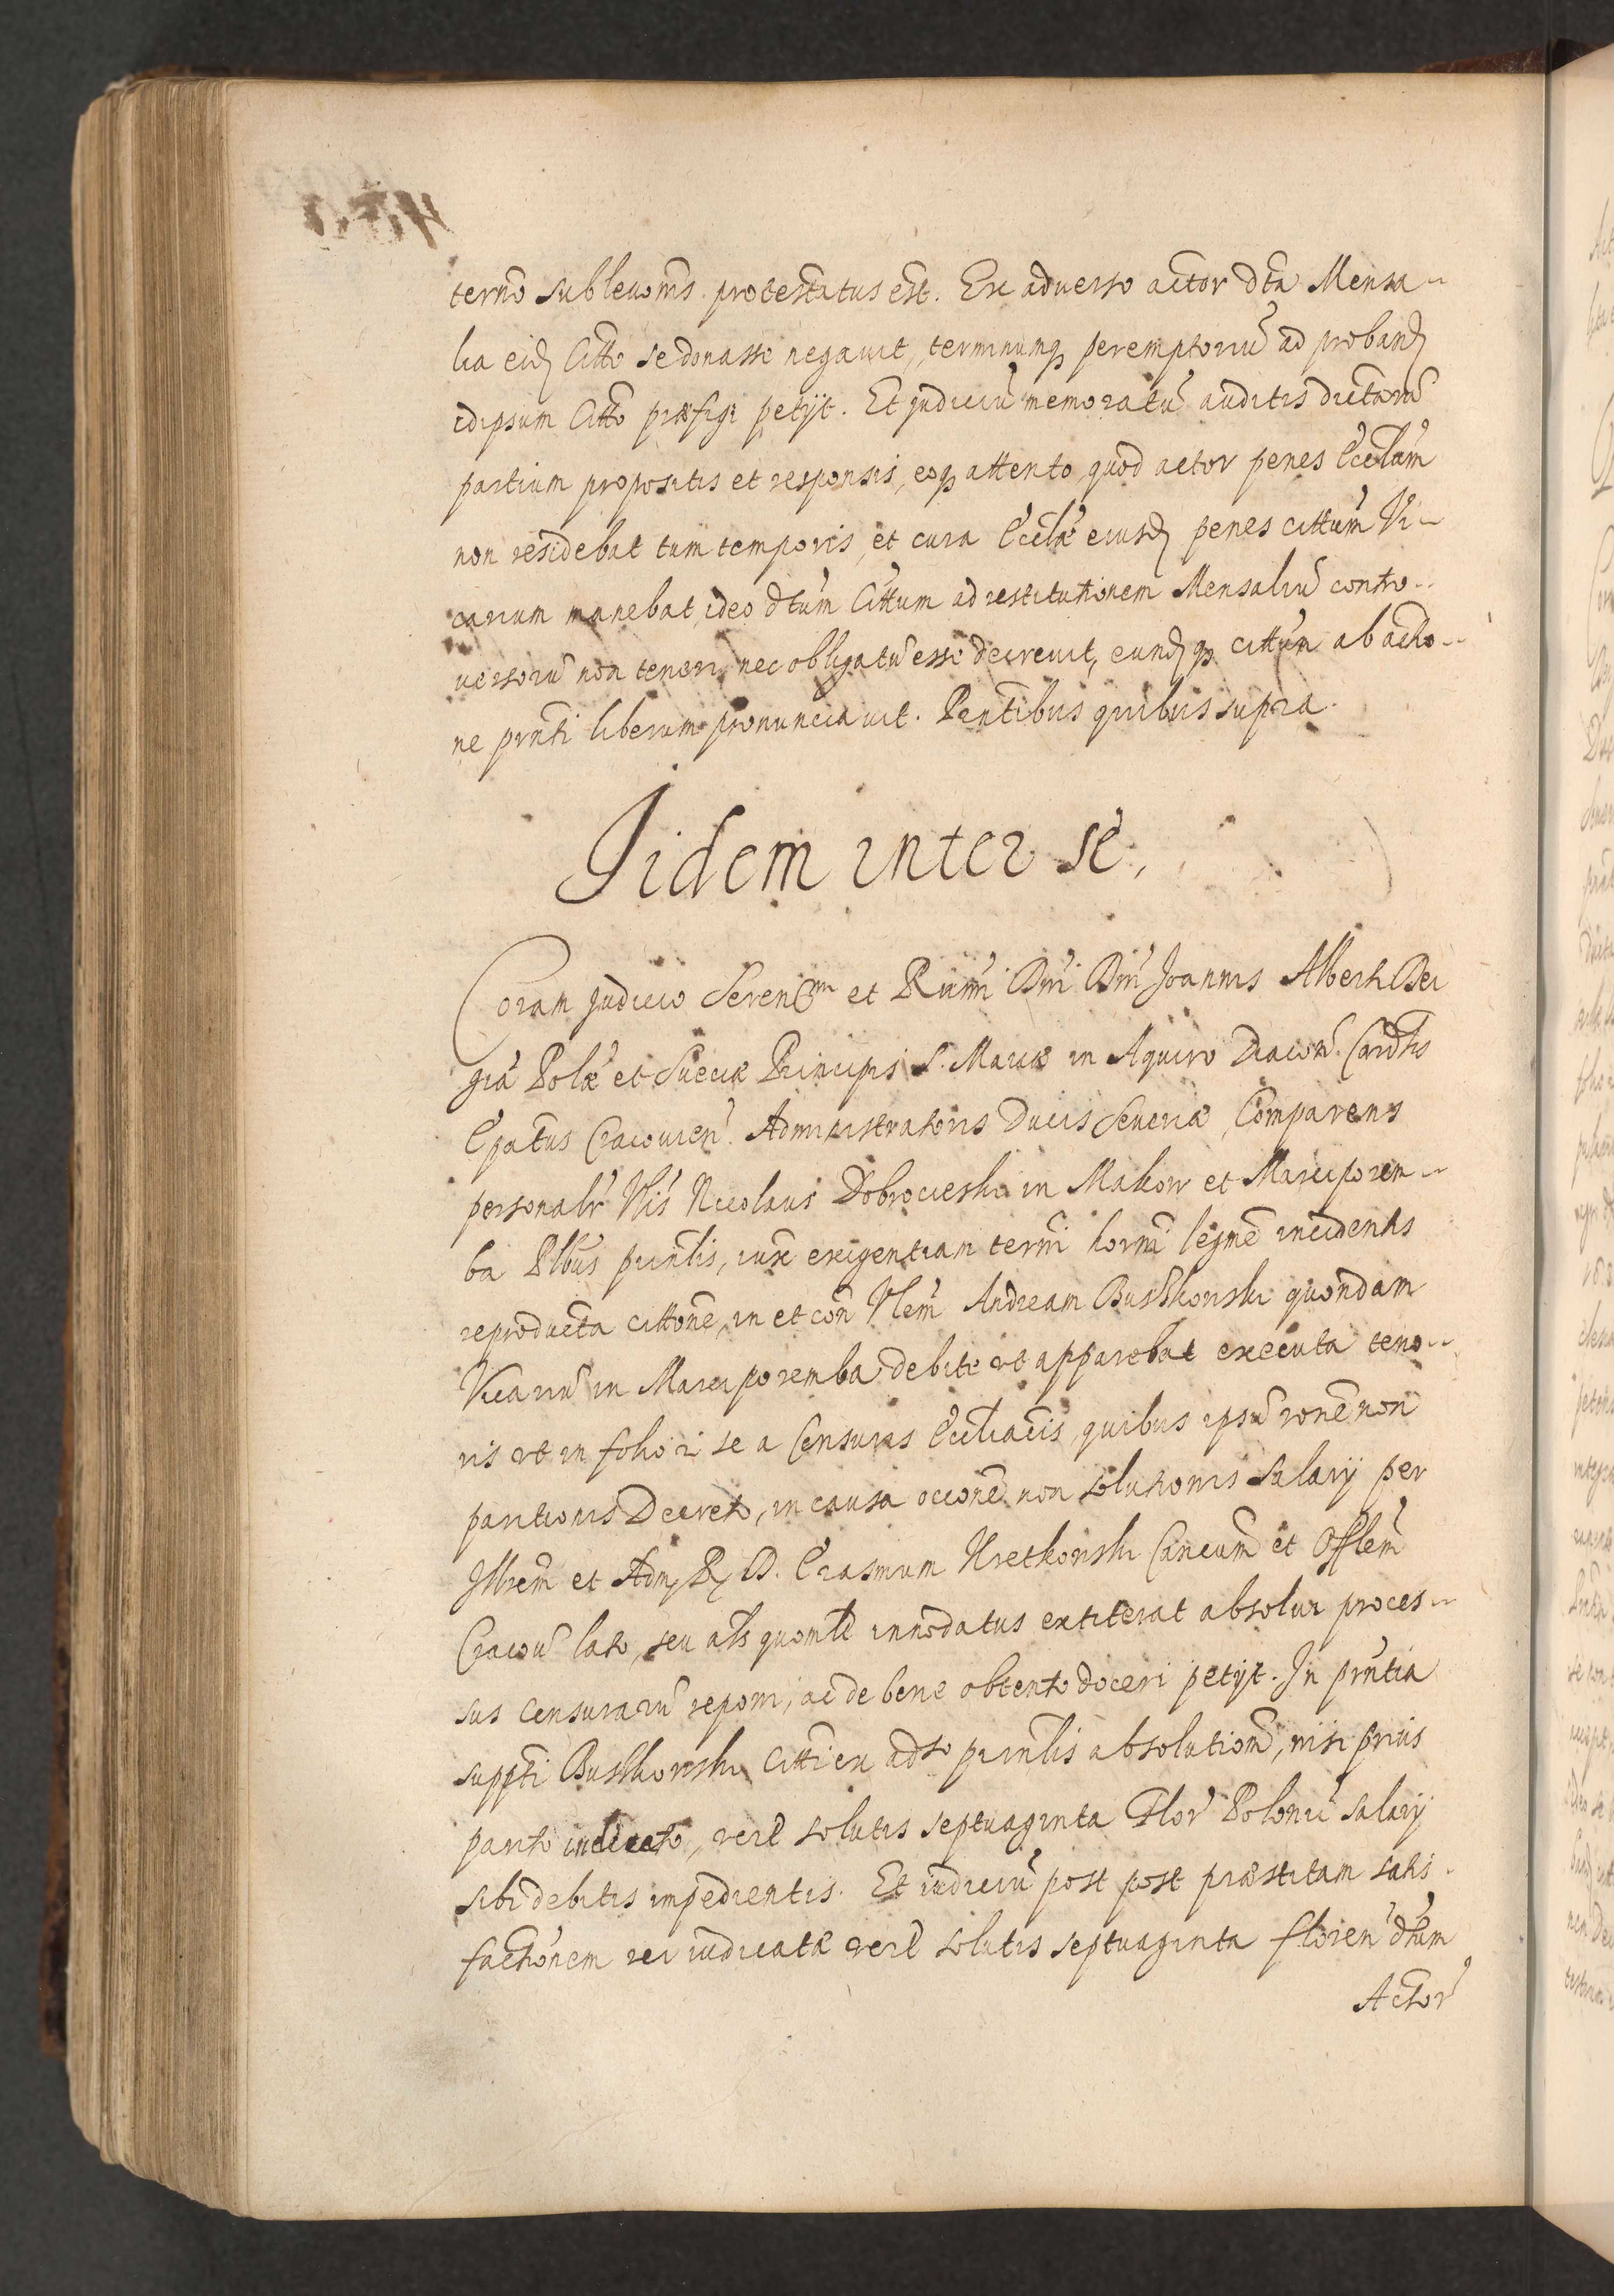 terno sublevoms. protestatus est. Ex adverso actor dta Mensa-
lia eid Citto se donasse negavit, terminumq peremptoriu ad proband
idipsum Citto præfigi petijt. Et judiciu memoratu auditis dictaru
partium propositis et responsis, eoq attento quod actor penes Eccla͂m
non residebat tum temporis, et cura Ecclæ eiusd penes cittum Vi-
carium manebat, ideo dtum Cittum ad restitutionem Mensaliu contro-
versoru non teneri, nec obligatu esse decrevit, eundq cittum ab actio-
ne pnti liberum pronunciavit. Pntibus quibus supra.
Iidem inter se.
Coram judicio Seren et Rmi Dni Dni Joannis Alberti Dei
gra Polæ et Sueciæ Principis S. Mariæ in Aquiro Diacon Cardlis
Epatus Cracovien. Administratoris Ducis Severiæ, Comparens
personalr Vlis Nicolaus Dobrocieski in Makow et Marciporem-
ba Plbus prinlis, iuxe exigentiam termi horni legme incidentis
reproducta cittone, in et con Vlem Andream Buskonski quondam
Vicariu in Marciporemba debite ut apparebat executa teno-
ris ut in folio i se a Censuris Eccliacis, quibus ipsu rone non
paritionis Decreto, in causa occone non solutionis Salarij per
Illrem et Adm R D. Erasmum Kretkonski Cancum et Offlem
Cracov lato, seu als quomlt innodatus extiterat absolvi proces-
sus Censuraru reponi, ac de bene obtento doceri petijt. In pntia
suppti Buskonski Citti ex adso prinlis absolutiom, nisi prius
parito indicato, reil solutis septuaginta Flor Poloni salarij
sibi debitis impedientis. Et iudiciu post post præstitam satis-
factionem rei iudicatæ reil solutis septuaginta floren dtum
Actor